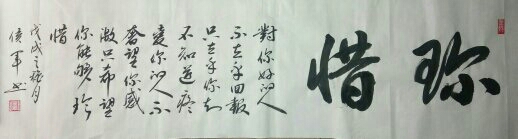 珍惜
對你好的人
不在乎回報
只在乎你知
不知道疼
愛你的人不
奢望你感
激只希望
你能够珍
惜
戊戌之月
軍书